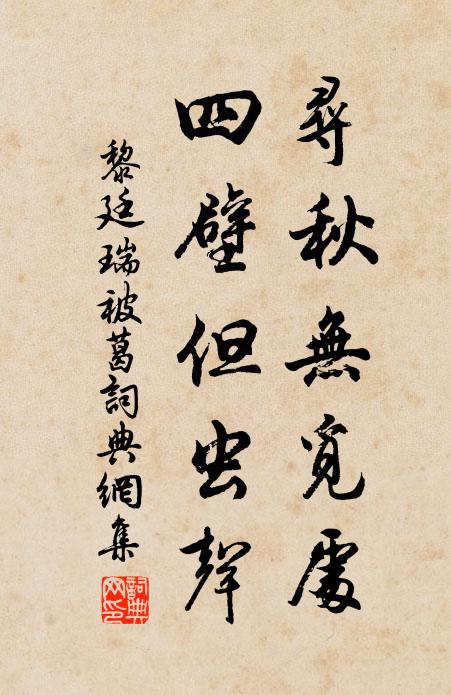 尋秋無覓處
四壁但虫聲
黎廷瑞被葛詞典網集
詞典網印